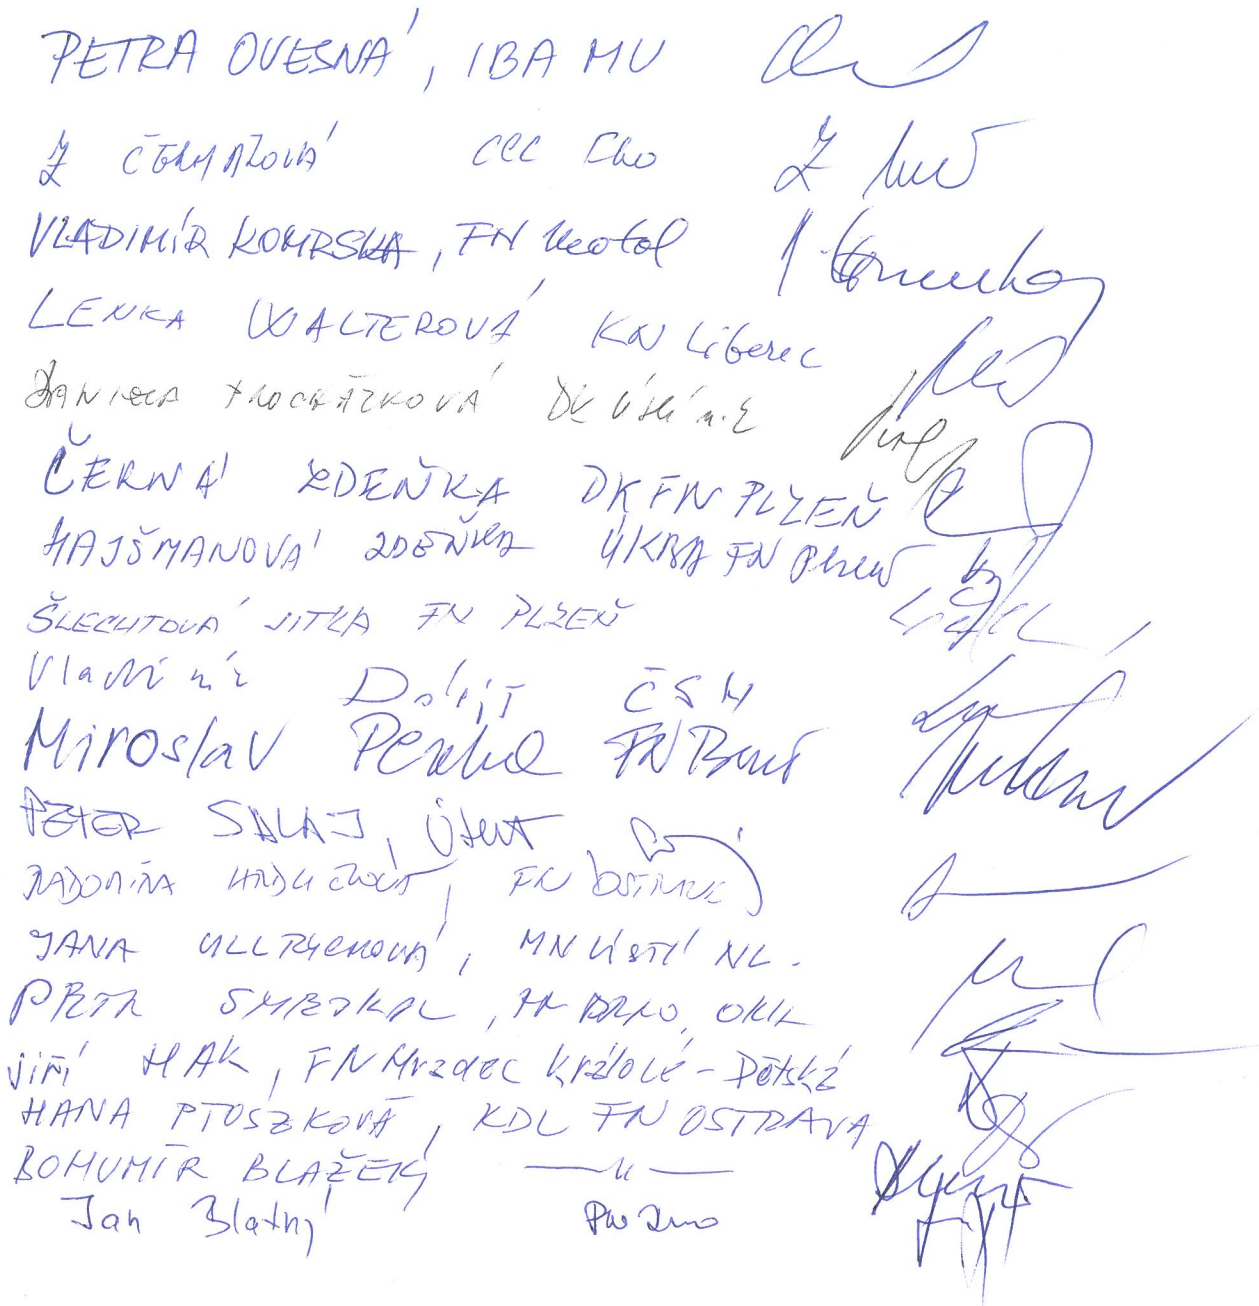 PETRA OVESNÁ, IBA MU
Z ČERMÁKOVÁ
VLADIMÍR KOMRSKA, FN Motol
LENKA WALTEROVÁ KN Liberec
DANIELA PROCHÁZKOVÁ DK Ústí n. L
ČERNÁ ZDEŇKA DK FN PLZEŇ
HAJŠMANOVÁ ZDEŇKA ÚKBH FN Plzeň
ŠLECHTOVÁ JITKA FN PLZEŇ
Vladimír ČSH
Miroslav Penka FN Brno
PETER SALAJ, ÚHKT
RADOMÍRA HRDLIČKOVÁ, FN OSTRAVA
JANA ULLRYCHOVÁ, MN ÚSTÍ NL.
PETR SMEJKAL, FN BRNO, OKH
Jiří HAK, FN Hradec Králové - Dětská
HANA PTOSZKOVÁ, KDL FN OSTRAVA
BOHUMÍR BLAŽEK, —„—
Jan Blatný FN Brno